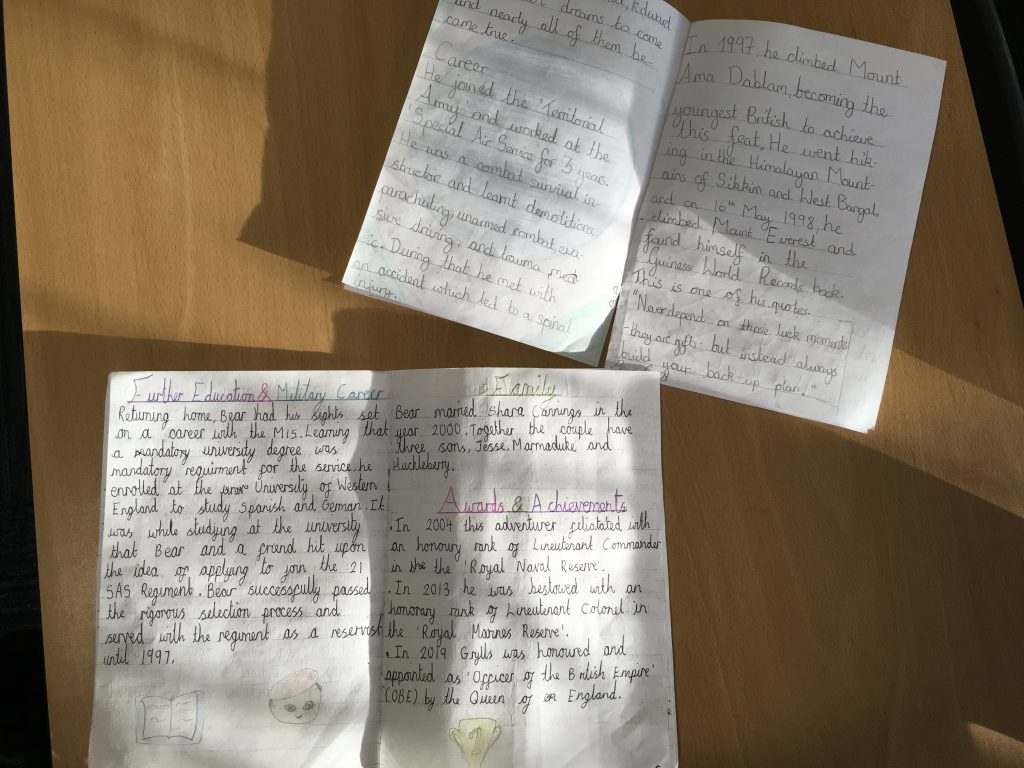 Edward
dreams to come
and nearly all of them be-
came true.
Career
He joined the 'Territorial
Army' and worked at the
'Special Air Service' for 3 years.
He was a combat survival in-
structor and learnt demolitions,
parachuting, unarmed combat, eva-
sive driving, and trauma med
-ic. During that he met with
an accident which led to a spinal
injury.
In 1997, he climbed Mount
Ama Dablam, becoming the
youngest British to achieve
this feat. He went hik-
ing in the Himalayan Mount-
ains of Sikkim and West Bangal,
and on 16th May 1998, he
climbed Mount Everest and
found himself in the
Guiness World Records book.
This is one of his quotes.
"Never depend on those luck moments
-they are gifts- but instead always
build your back-up plan."
Further Education & Military Career
Returning home, Bear had his sights set
on a career with the MI5. Learning that
a mandatory university degree was
mandatory requirment for the service, he
enrolled at the University of Western
England to study Spanish and German. It
was while studying at the university
that Bear and a friend hit upon
the idea of applying to join the 21
SAS Regiment. Bear successfully passed
the rigorous selection process and
served with the regiment as a reservist
until 1997.
Family
Bear married Shara Cannings in the
year 2000. Together the couple have
three sons, Jesse, Marmaduke and
Huckleberry.
Awards & Achievements
• In 2004 this adventurer filiatated with
an honoury rank of Lineutenant Commander
in the the 'Royal Naval Reserve'.
• In 2013 he was bestowed with an
honorary rank of Lineutenant Colonel in
the 'Royal Marines Reserve'.
• In 2019 Grylls was honoured and
appointed as 'Officer of the British Empire'
(OBE) by the Queen of England.
1